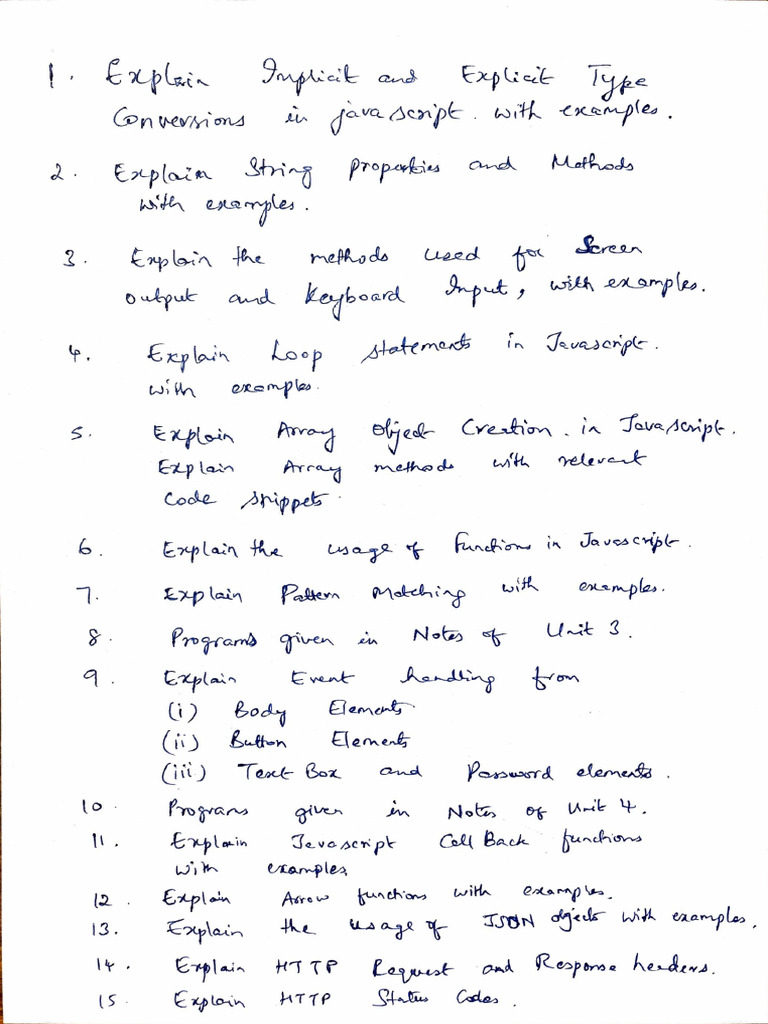 1. Explain Implicit and Explicit Type
Conversions in javascript. with examples.
2. Explain String properties and Methods
with examples.
3. Explain the methods used for Screen
output and Keyboard Input, with examples.
4. Explain Loop statements in Javascript.
with examples.
5. Explain Array Object Creation. in JavaScript.
Explain Array methods with relevant
Code snippets.
6. Explain the usage of functions in Javascript.
7. Explain Pattern Matching with examples.
8. Programs given in Notes of Unit 3.
9. Explain Event handling from
(i) Body Elements
(ii) Button Elements
(iii) Text Box and Password elements.
10. Programs given in Notes of Unit 4.
11. Explain Javascript Call Back functions
with examples.
12. Explain Arrow functions with examples.
13. Explain the usage of JSON objects with examples.
14. Explain HTTP Request and Response headers.
15. Explain HTTP Status Codes.